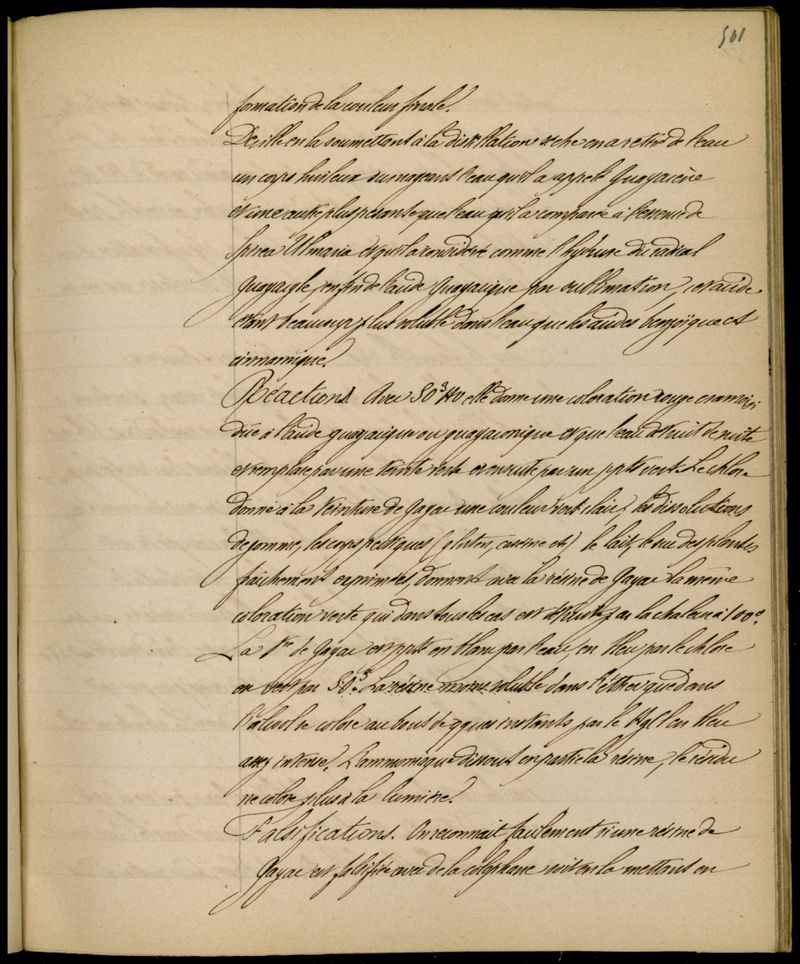 501
formation de la couleur finale.
Deville en la soumettant à la distillation sèche en a retiré de l'eau
un corps huileux surnageant l'eau qu'il a appelé Guayacène
et une autre plus pesante que l'eau qu'il a comparée à l'essence de
Spirea Ulmaria et qu'il a considéré comme l'hydrure du radical
Guayacyle, enfin de l'acide Guayacique par sublimation, cet acide
étant beaucoup plus soluble dans l'eau que les acides benzoïque et
cinnamique.
Réactions. Avec SO³HO elle donne une coloration rouge cramoisi
due à l'acide guayacique ou guayaconique et que l'eau détruit de suite
et remplace par une teinte verte et ensuite par un ppté vert. Le chlore
donne à la teinture de Gayac une couleur vert clair; les dissolutions
de gomme, les corps protéiques (gluten, caséine etc) le lait, le suc des plantes
fraîchement exprimées, donnent avec la résine de Gayac la même
coloration verte qui dans tous les cas est détruite par la chaleur à 100°.
La Tre de Gayac est ppté en blanc par l'eau, en bleu par le chlore
en vert par SO³. La résine moins soluble dans l'éther que dans
l'alcool se colore au bout de qques instants par le HgCl en bleu
assez intense. L'ammoniaque dissout en partie la résine, le résidu
ne colore plus à la lumière.
Falsifications. On reconnait facilement si une résine de
Gayac est falsifiée avec de la colophane soit en la mettant en